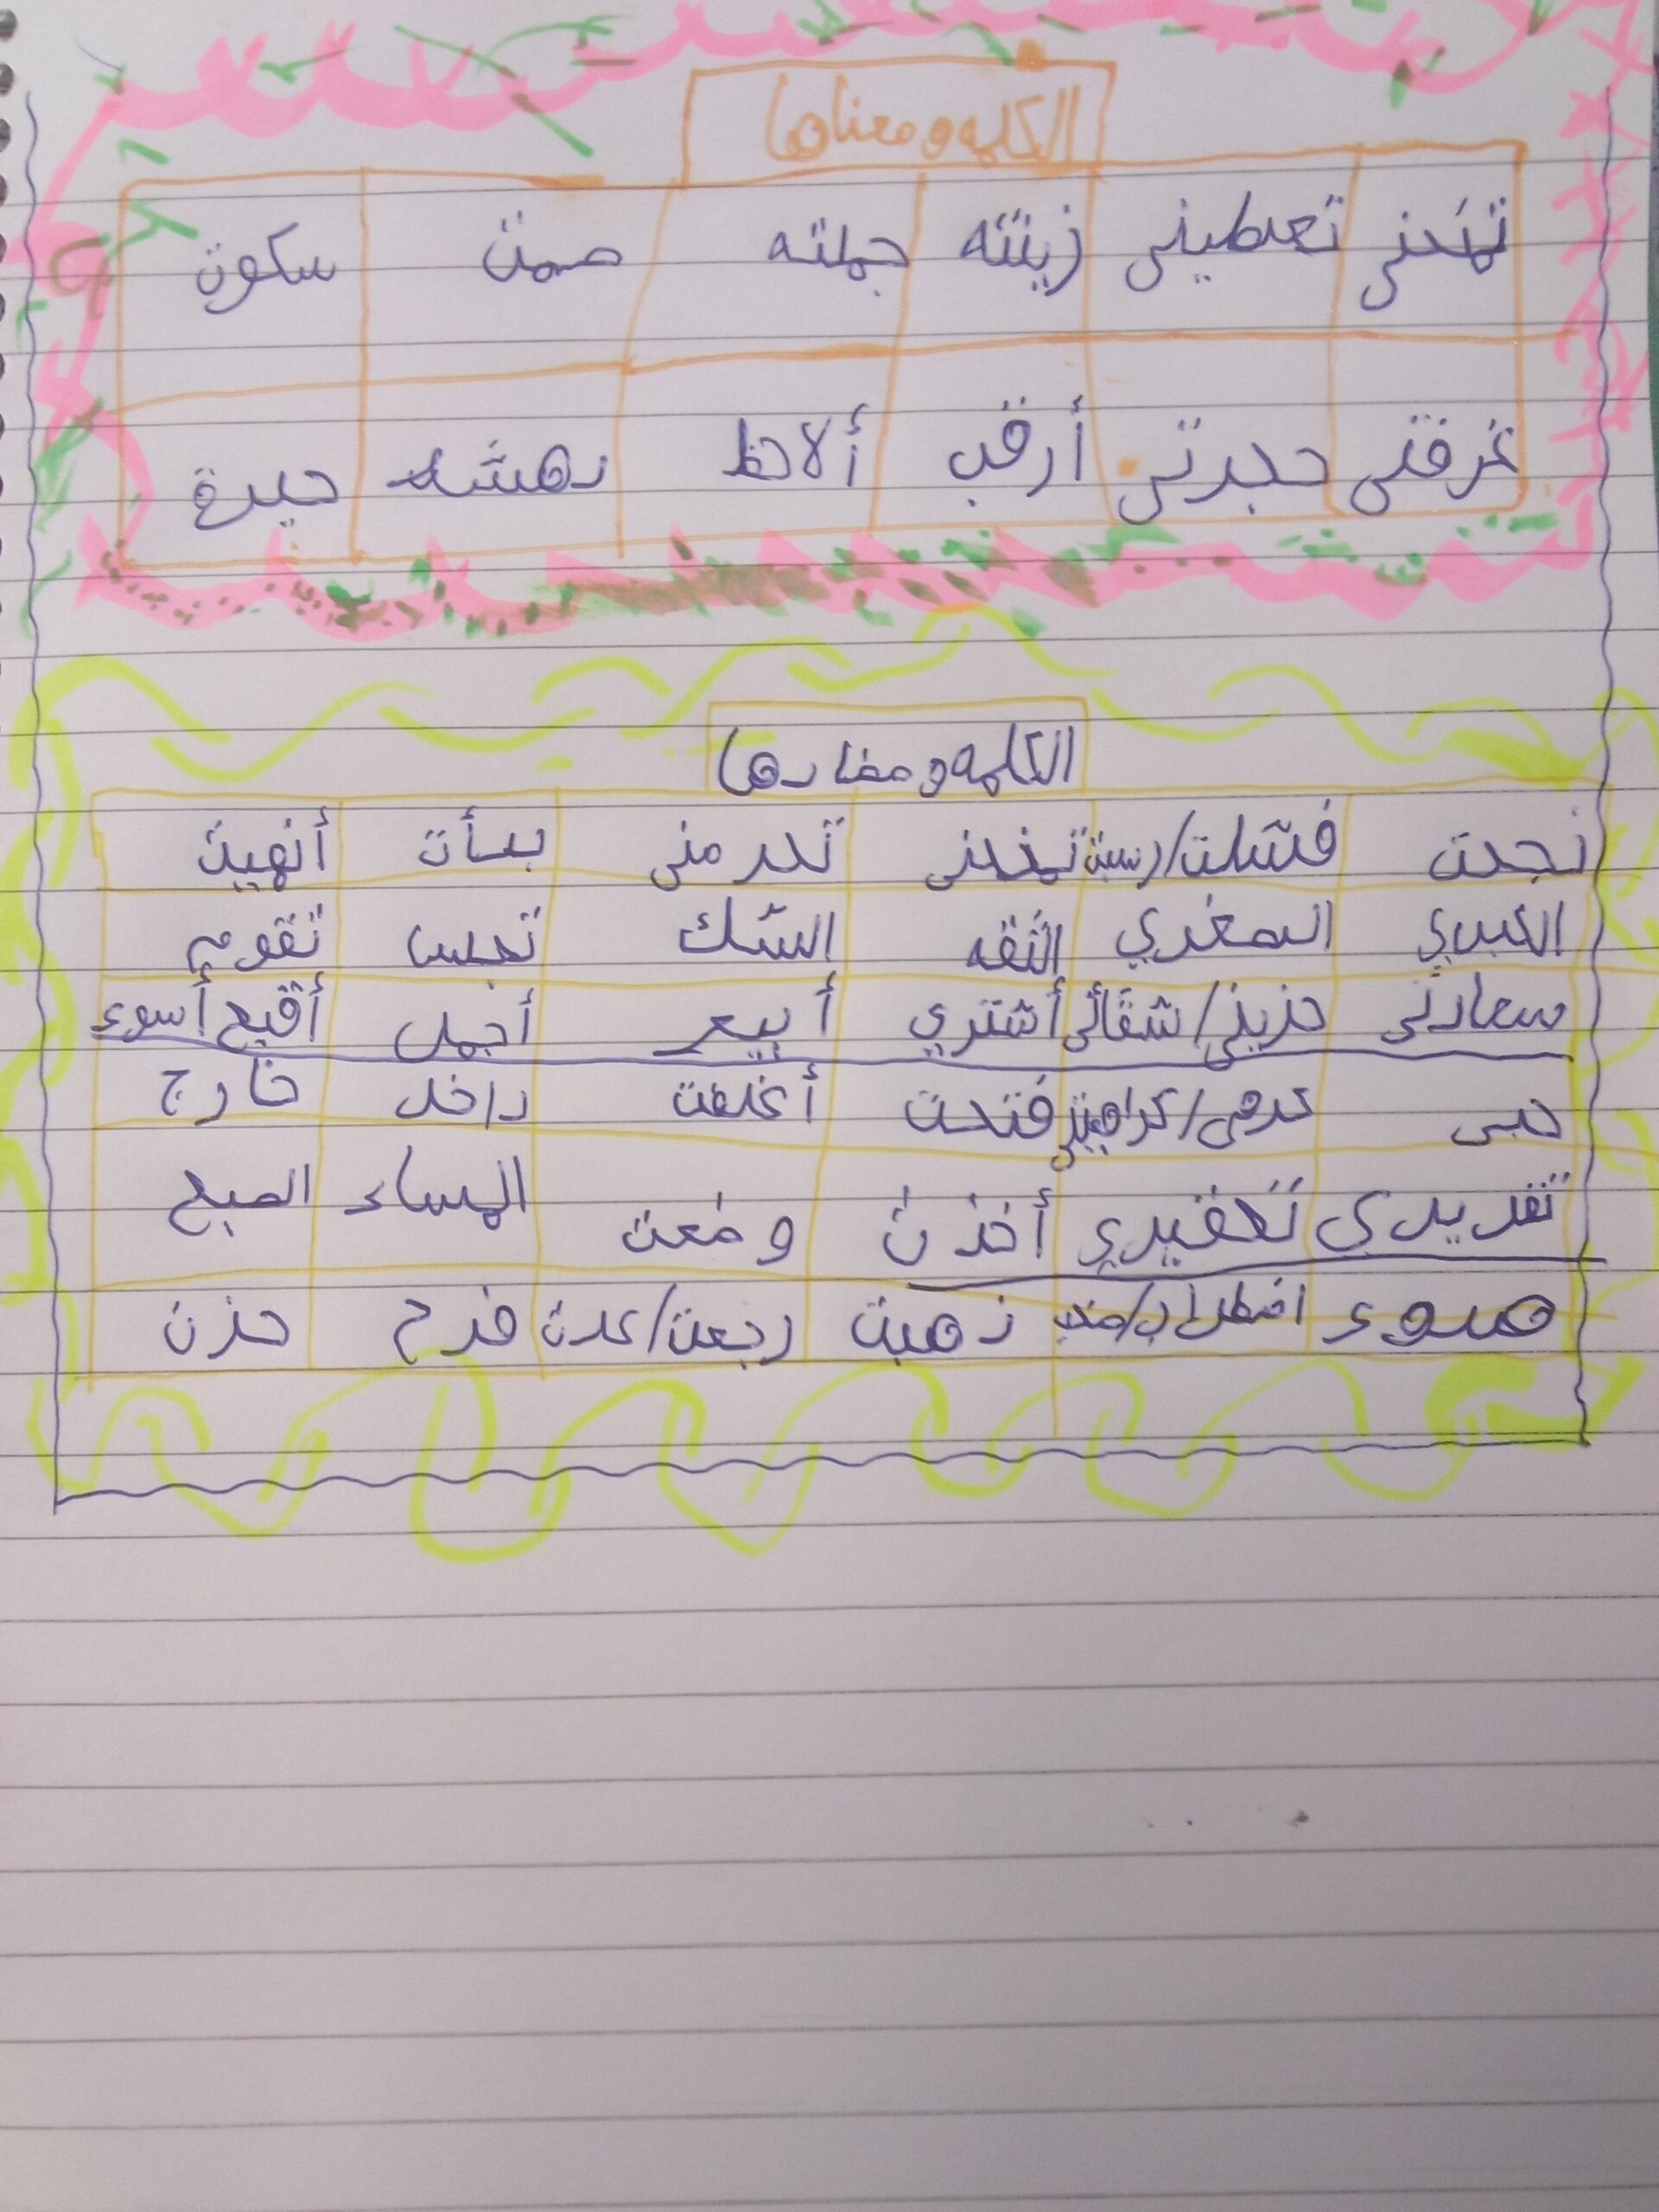 الكلمه ومعناها
تمنحني تعطيني زينته جملته صمت سكون
غرفتي حجرتي أرقب ألاحظ دهشه حيرة
الكلمه ومضادها
نجحت فشلت/رسبت تمنحني تحرمني بدأت أنهيت
الكبري الصغري الثقه الشك تجلس تقوم
سعادتي حزني/شقائي أشتري أبيع أجمل أقبح أسوء
حبي كرهي/كراهيتي فتحت أغلقت داخل خارج
تقديري تحقيري أخذت وضعت المساء الصبح
هدوء اضطراب/ ذهبت رجعت/عدت فرح حزن